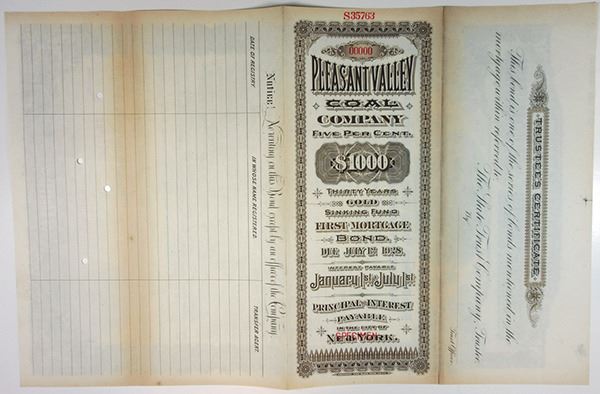 S35763
00000
PLEASANT VALLEY
COAL
COMPANY
FIVE PER CENT.
$1000
THIRTY YEARS
GOLD
SINKING FUND
FIRST MORTGAGE
BOND.
DUE JULY 1ST 1928.
INTEREST PAYABLE
January 1st & July 1st
PRINCIPAL & INTEREST
PAYABLE
IN THE CITY OF
SPECIMEN
NEW YORK.
Notice! No writing on this Bond except by an officer of the Company.
DATE OF REGISTRY.
IN WHOSE NAME REGISTERED.
TRANSFER AGENT.
TRUSTEE'S CERTIFICATE.
This bond is one of the series of bonds mentioned in the
mortgage within referred to.
The State Trust Company, Trustee
By